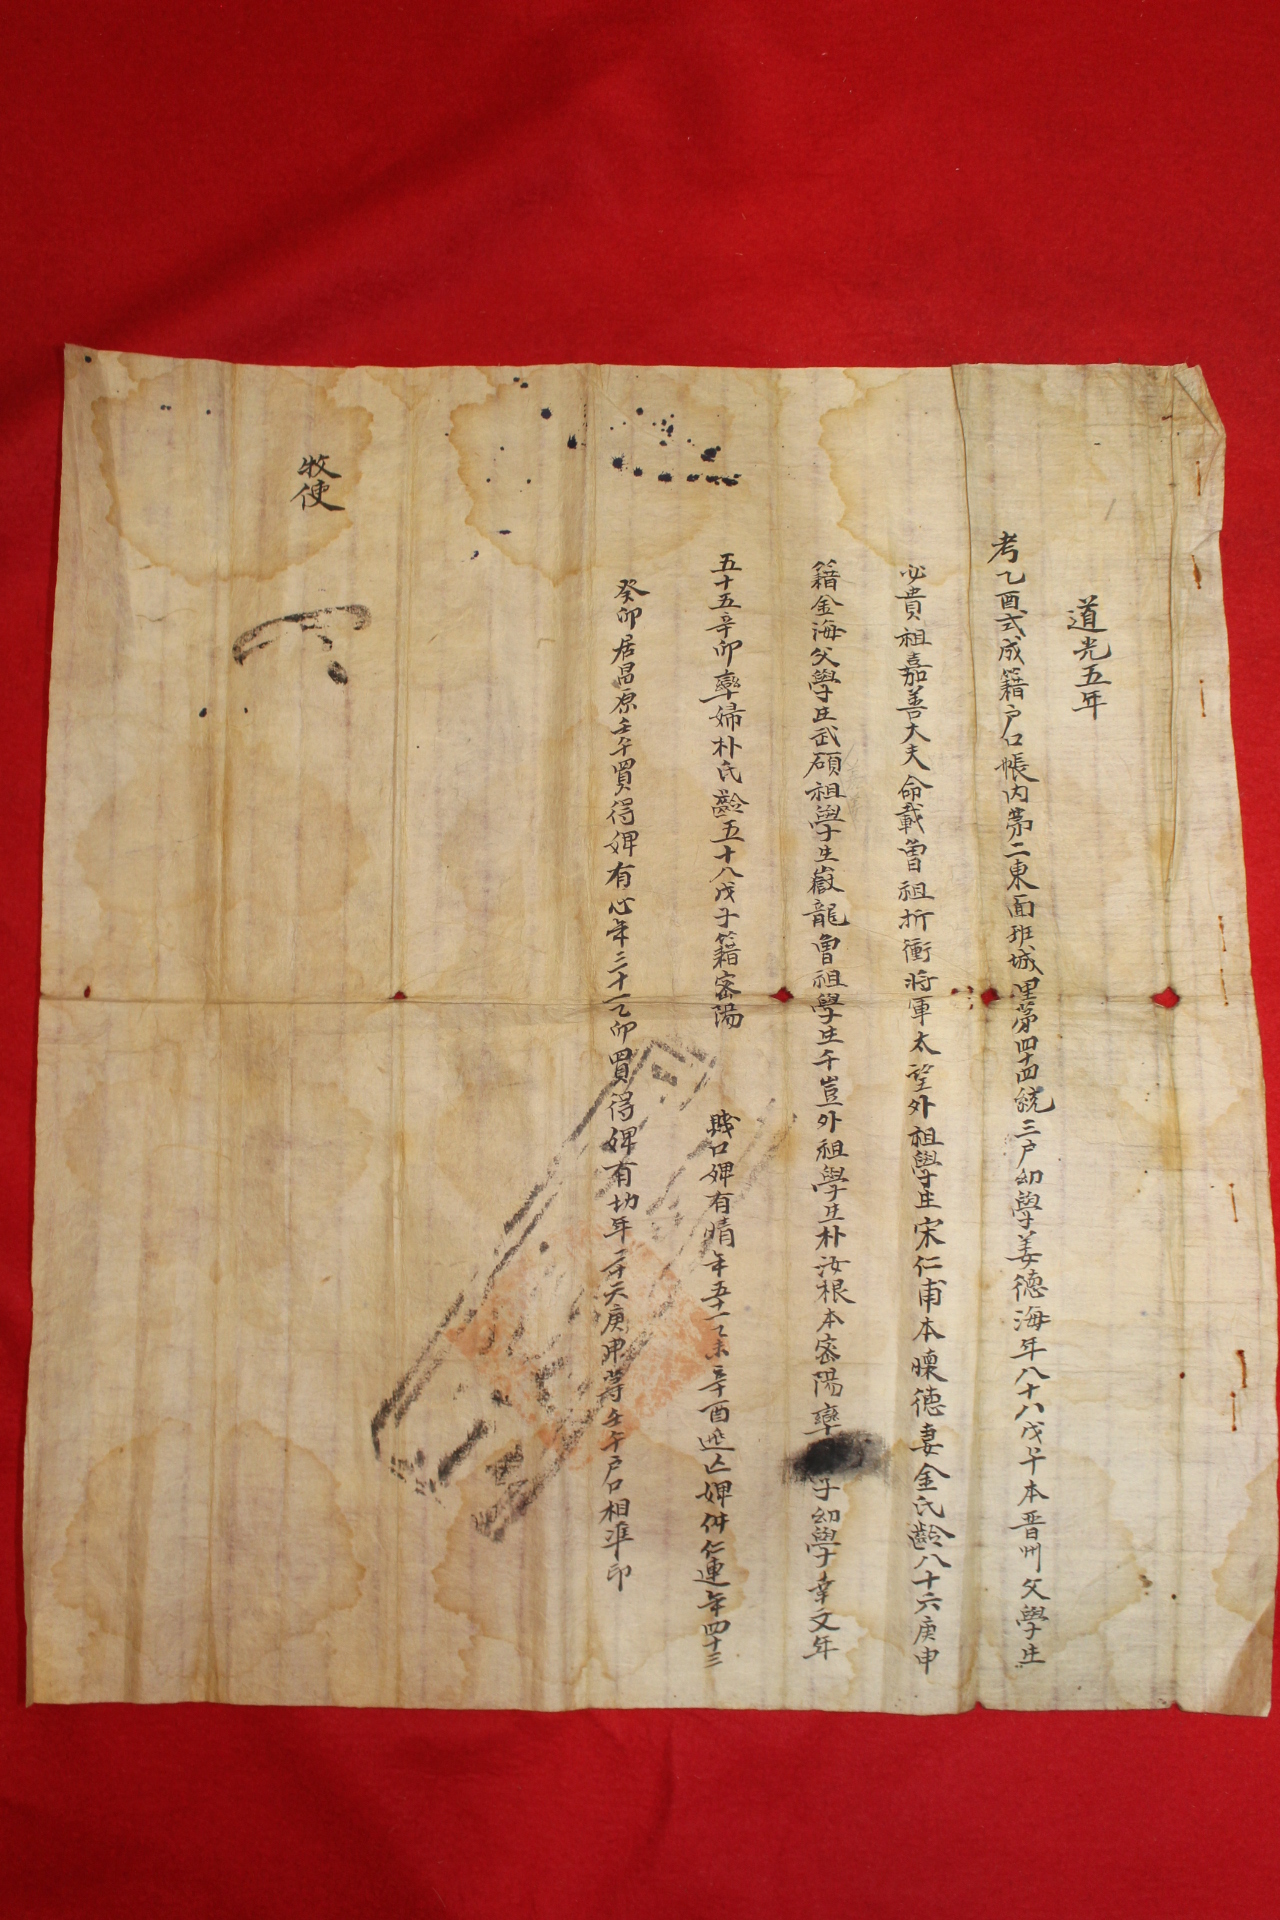 道光五年
考乙酉式成籍戶口帳內第二東面班城里第四十四統三戶幼學姜德海年八十八戊午本晋州父學生
必貴祖嘉善大夫命載曾祖折衝將軍太望外祖學生宋仁甫本懷德妻金氏齡八十六庚申
籍金海父學生武碩祖學生嶽龍曾祖學生千豈外祖學生朴汝根本密陽率子幼學幸文年
五十五辛卯率婦朴氏齡五十八戊子籍密陽 賤口婢有晴年五十一乙未辛酉逃亡婢仁連年四十三
癸卯居昌原壬午買得婢有心年三十一乙卯買得婢有切年二十六庚申等壬午戶口相準印
牧使